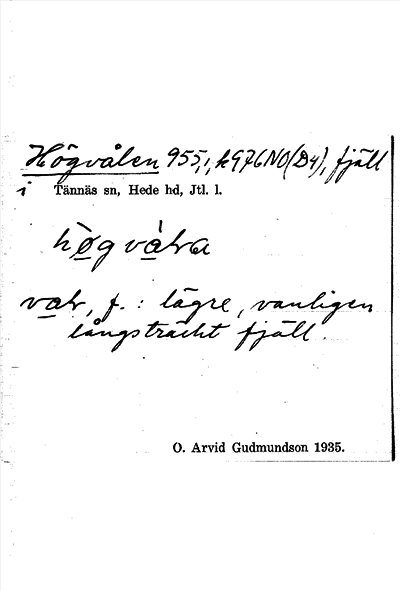 Högvålen 955, k976NO(D4), fjäll
i Tännäs sn, Hede hd, Jtl. l.
høgvåḷa
vaḷ, f. : lägre, vanligen
långsträckt fjäll.
O. Arvid Gudmundson 1935.